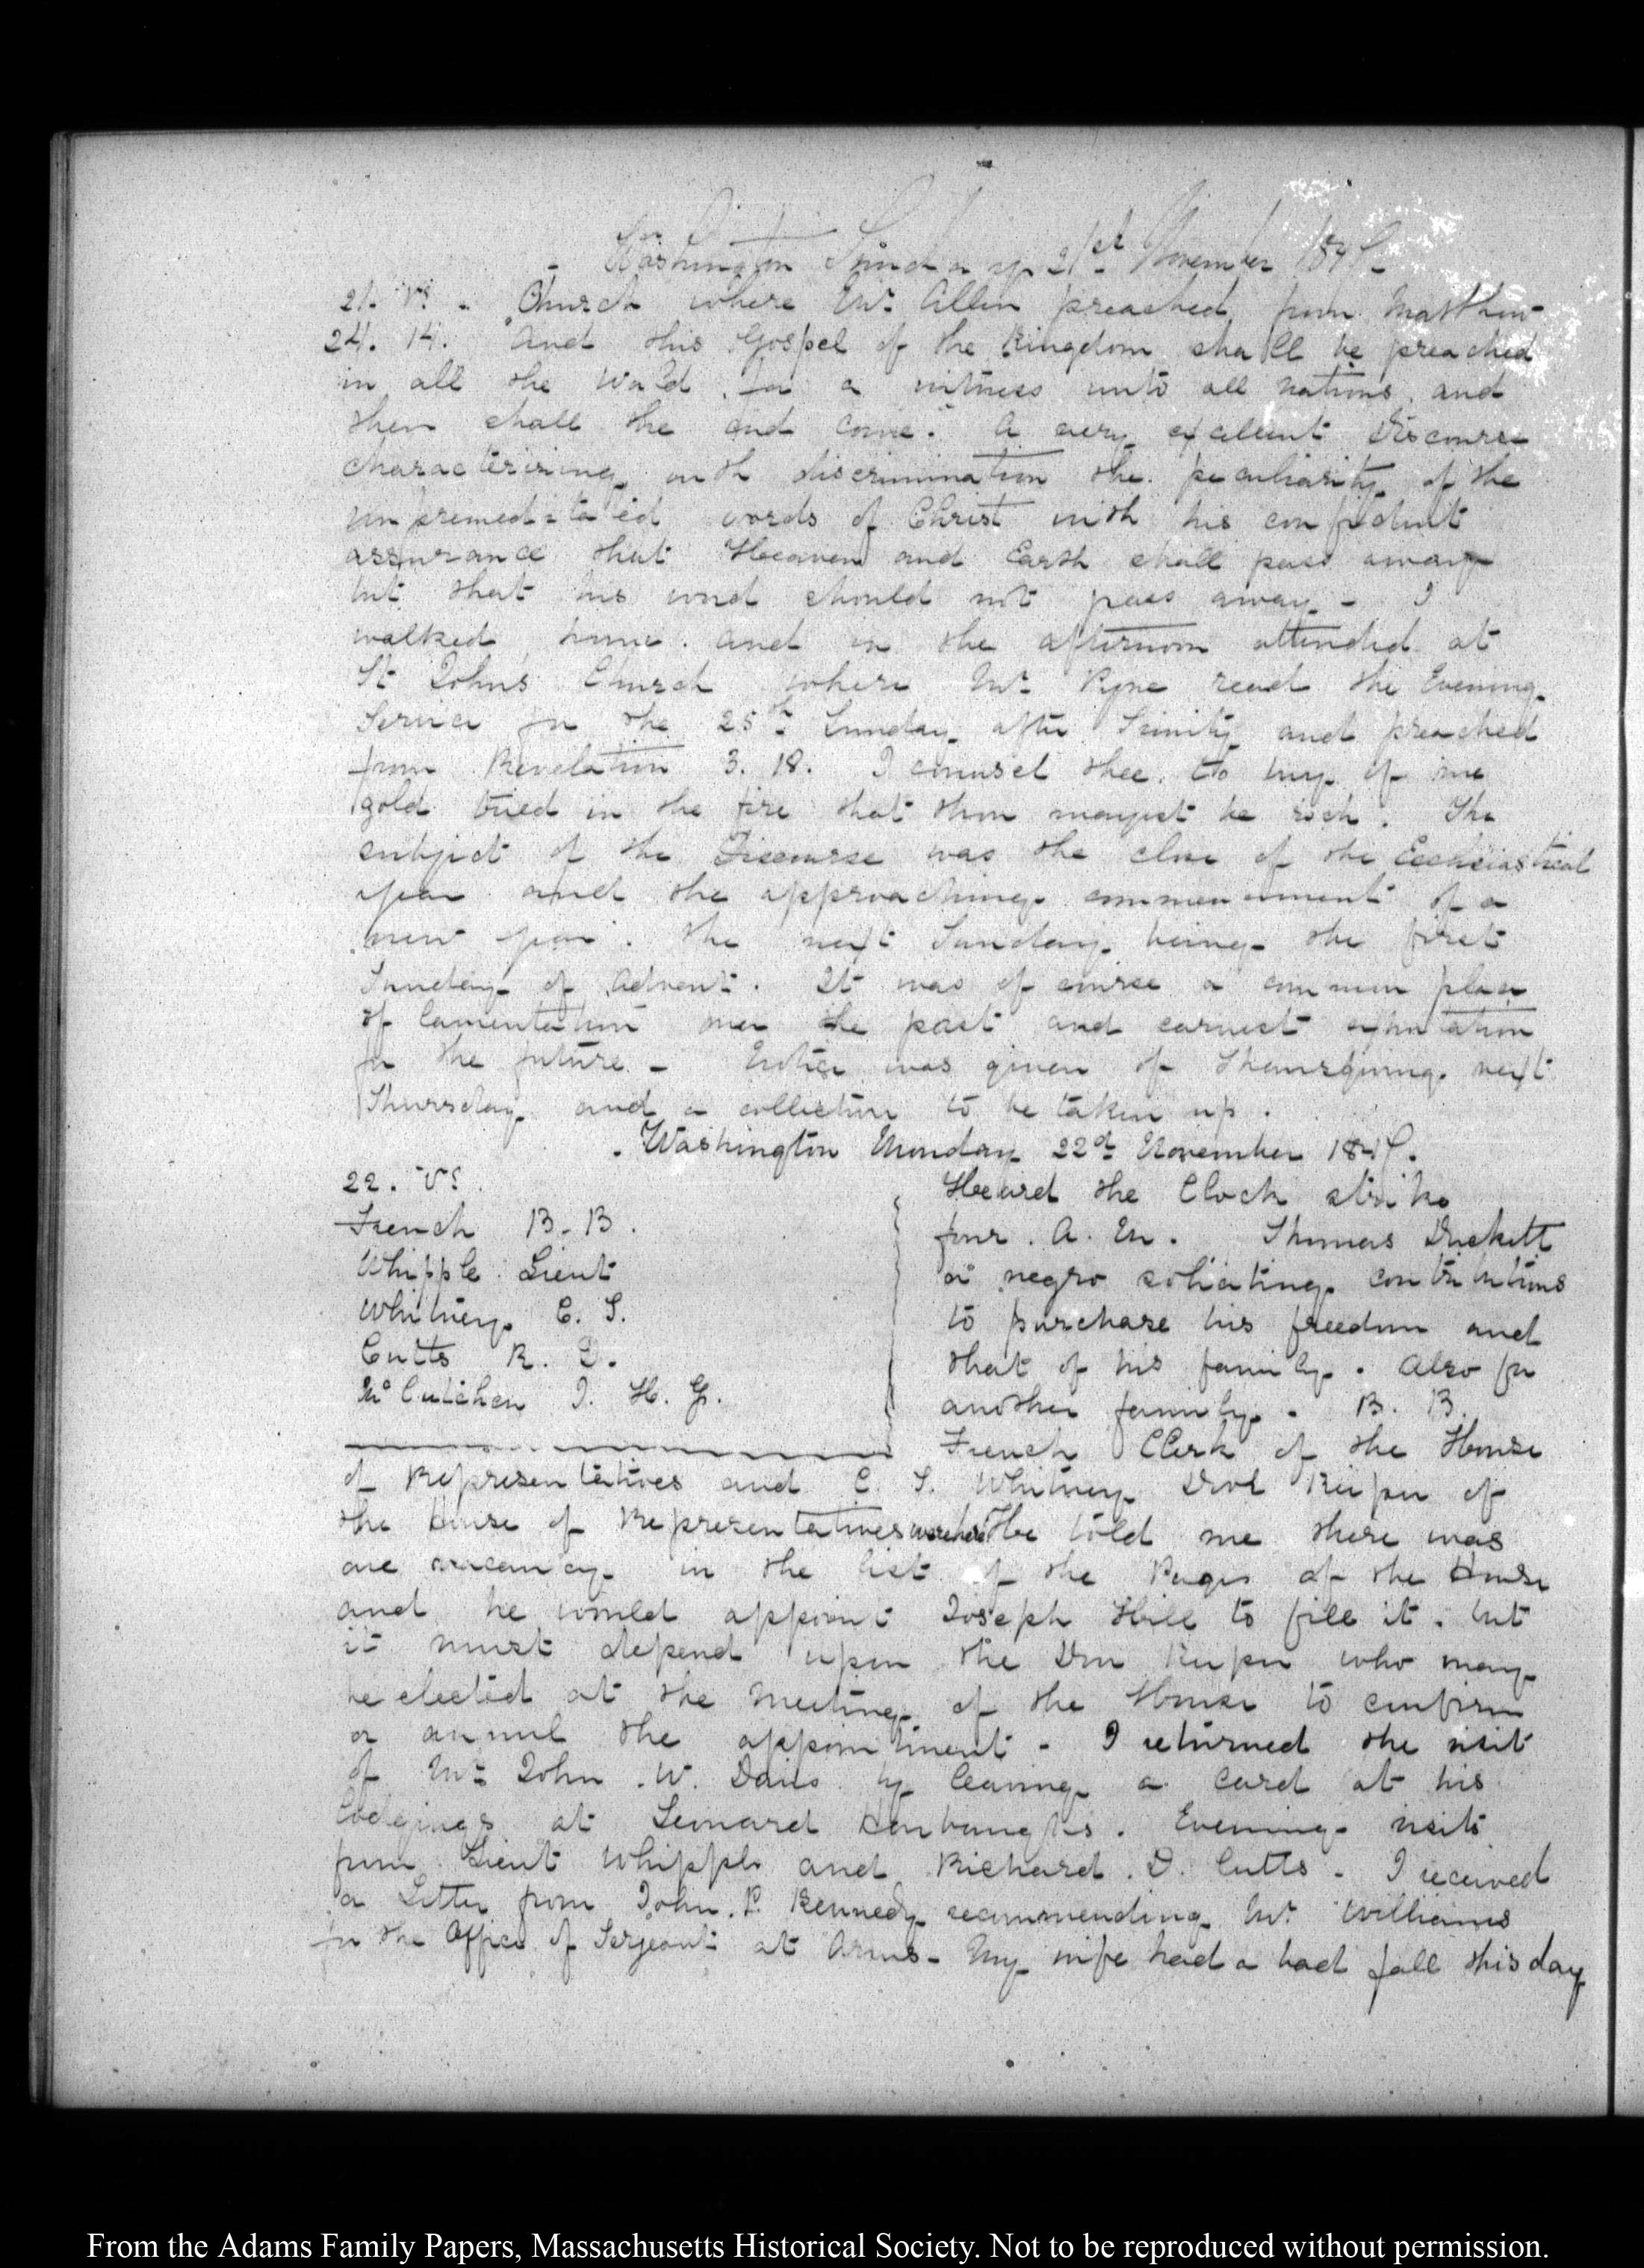 Washington Sunday 21st November 1847.
21. V. Church where Mr. Allen preached from Matthew
24. 14. And this Gospel of the Kingdom shall be preached
in all the World, for a witness unto all nations, and
then shall the end come. A very excellent Discourse
characterizing with discrimination the peculiarity of the
unpremeditated words of Christ with his confident
assurance that Heaven and Earth shall pass away
but that his word should not pass away — I
walked home. and in the afternoon attended at
St Johns Church where Mr. Pyne read the Evening
Service for the 25th Sunday after Trinity and preached
from Revelation 3. 18. I counsel thee. to buy of me
gold tried in the fire that thou mayest be rich. The
subject of the Discourse was the close of the Ecclesiastical
year and the approaching commencement of a
new year. the next Sunday being the first
Sunday of Advent. It was of course a common place
of lamentation over the past and earnest exhortation
for the future — Notice was given of Thanksgiving next
Thursday and a collection to be taken up.
Washington Monday 22d November 1847.
22. V.
French B. B.
Whipple Lieut
Whitney C. S.
Cutts R. D.
McCutchen J. H. G.
Heard the Clock strike
four. A. M. Thomas Duckett
a negro soliciting contributions
to purchase his freedom and
that of his family. Also for
another family. B. B.
French Clerk of the House
of Representatives and C. S. Whitney Door Keeper of
the House of Representatives were here He told me there was
one vacancy in the list of the Pages of the House
and he would appoint Joseph Hill to fill it. but
it must depend upon the Door Keeper who may
be elected at the meeting of the House to confirm
or annul the appointment — I returned the visit
of Mr. John W. Davis by leaving a card at his
lodgings at Leonard Harbaugh's. Evening visits
from Lieut Whipple and Richard. D. Cutts — I received
a Letter from John. P. Kennedy recommending Mr. Williams
for the Office of Sergeant at Arms — My wife had a bad fall this day
From the Adams Family Papers, Massachusetts Historical Society. Not to be reproduced without permission.